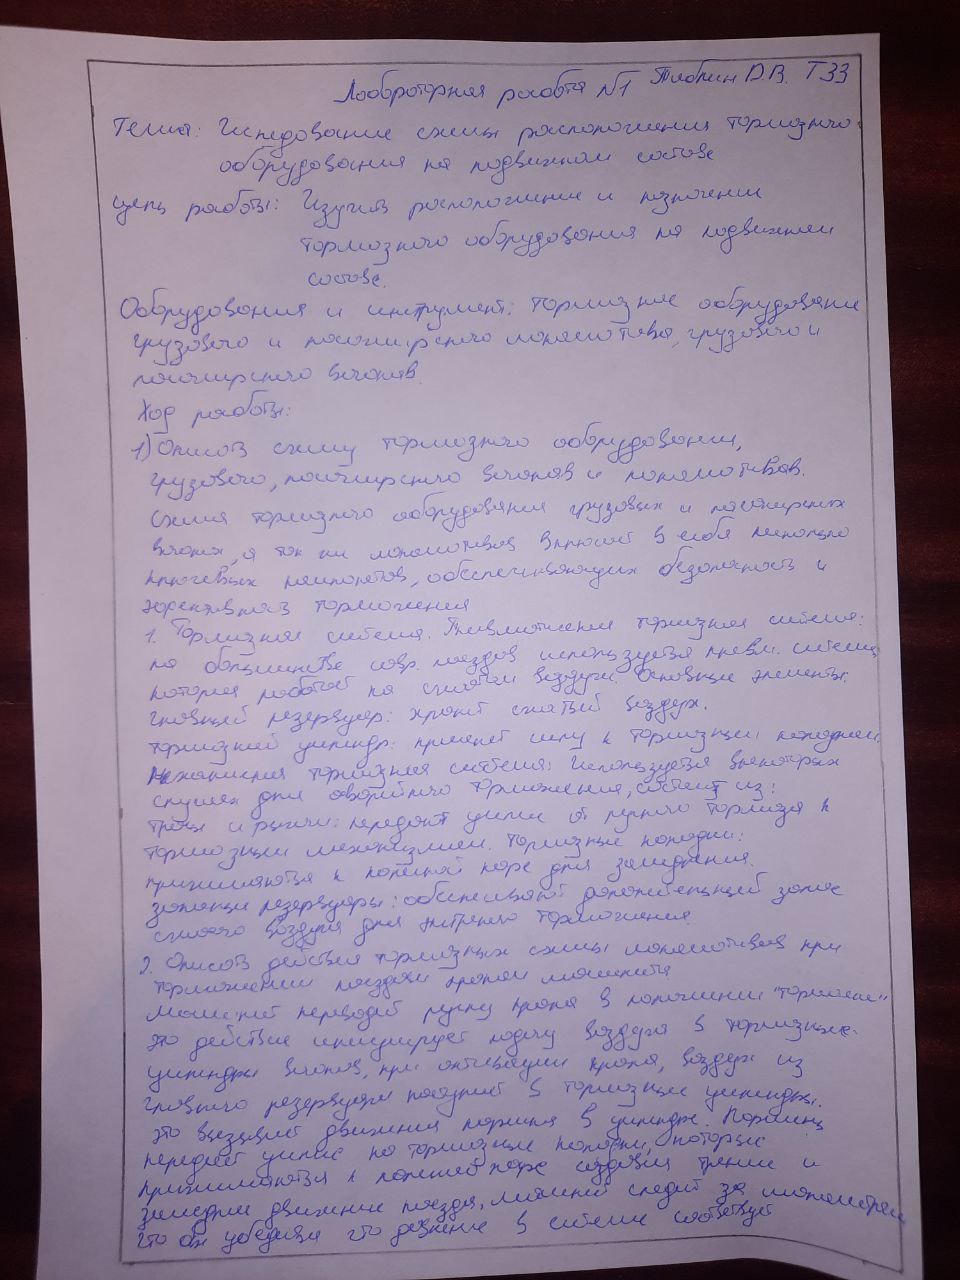 Лабораторная работа №1 Т33
Тема: Исследование схемы расположения тормозного
оборудования на подвижном составе
Цель работы: Изучить расположение и назначение
тормозного оборудования на подвижном
составе.
Оборудования и инструмент: тормозное оборудование
грузового и пассажирского локомотива, грузового и
пассажирского вагонов.
Ход работы:
1) Описать схему тормозного оборудования,
грузового, пассажирского вагонов и локомотивов.
Схема тормозного оборудования грузовых и пассажирских
вагонах, а так же локомотивов включает в себя несколько
ключевых компонентов, обеспечивающих безопасность и
эффективность торможения
1. Тормозная система. Пневматическая тормозная система:
на большинстве совр. поездов используется пневм. система
которая работает на сжатом воздухе. Основные элементы:
главный резервуар: хранит сжатый воздух.
тормозной цилиндр: применяет силу к тормозным колодкам.
Механическая тормозная система: используется в некоторых
случаях для аварийного торможения, состоит из:
тросы и рычаги: передают усилие от ручного тормоза к
тормозным механизмам. тормозные колодки:
прижимаются к колесной паре для замедления.
запасные резервуары: обеспечивают дополнительный запас
сжатого воздуха для экстренного торможения
2. Описать действия тормозных схемы локомотивов при
торможении поездов краном машиниста
Машинист переводит ручку крана в положение "торможение"
это действие инициирует подачу воздуха в тормозные
цилиндры вагонов, при активации крана, воздух из
главного резервуара поступает в тормозные цилиндры.
это вызывает движения поршня в цилиндре. Поршень
передаёт усилие на тормозные колодки, которые
прижимаются к колесной паре создавая трение и
замедляя движение поезда, машинист следит за манометрам
что бы убедится что давление в системе соответствует